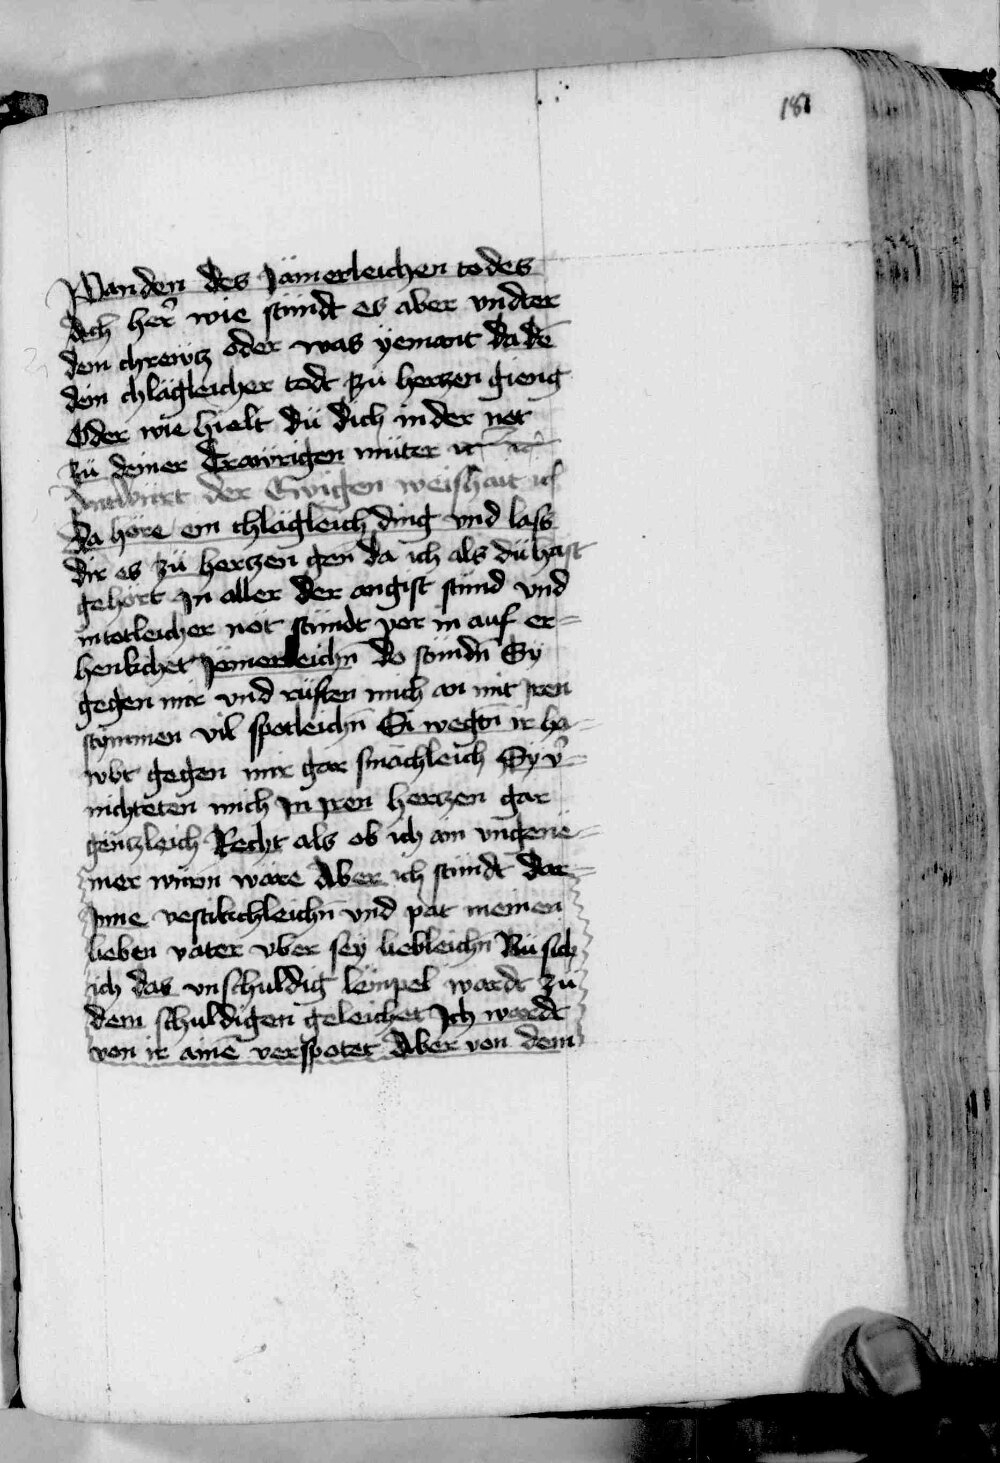 181
Panden des Jämerleichen todes
Ach her᷑ wie stündt es aber vndter
dem chreẅtz oder was ÿemant da dē
dein chlägleicher todt zü herczen gieng
Oder wie hielt dü dich in der not
zü deiner Traẅrigen müter
Antwürt der Ewigen weishait
Da höre ein chlägleich ding vnd lass
dir es zü herczen gen da ich als dü hast
gehört In aller der angist stünd vnd
in totleicher not stündt vor in auf er=
henkchet Jämerleichn̄ do stündn̄ Sÿ
gegen mir vnd rüften mich an mit Jren
stÿmmen vil spotleichn̄ Si wegtn̄ ir ha=
wbt gegen mir gar smächleich Sÿ v᷑=
nichteten mich In Jren herczen gar
gäntzleich Recht als ob ich ain vngenë=
mer wurm wäre Aber ich stündt dar=
Jnne vestikchleichn̄ vnd pat meinen
lieben vater vber seÿ liebleichn̄ Nü sich
ich das vnschuldig lempel wardt zü
dem schuldigen geleichet Ich wardt
von ir ainē verspotet Aber von dem